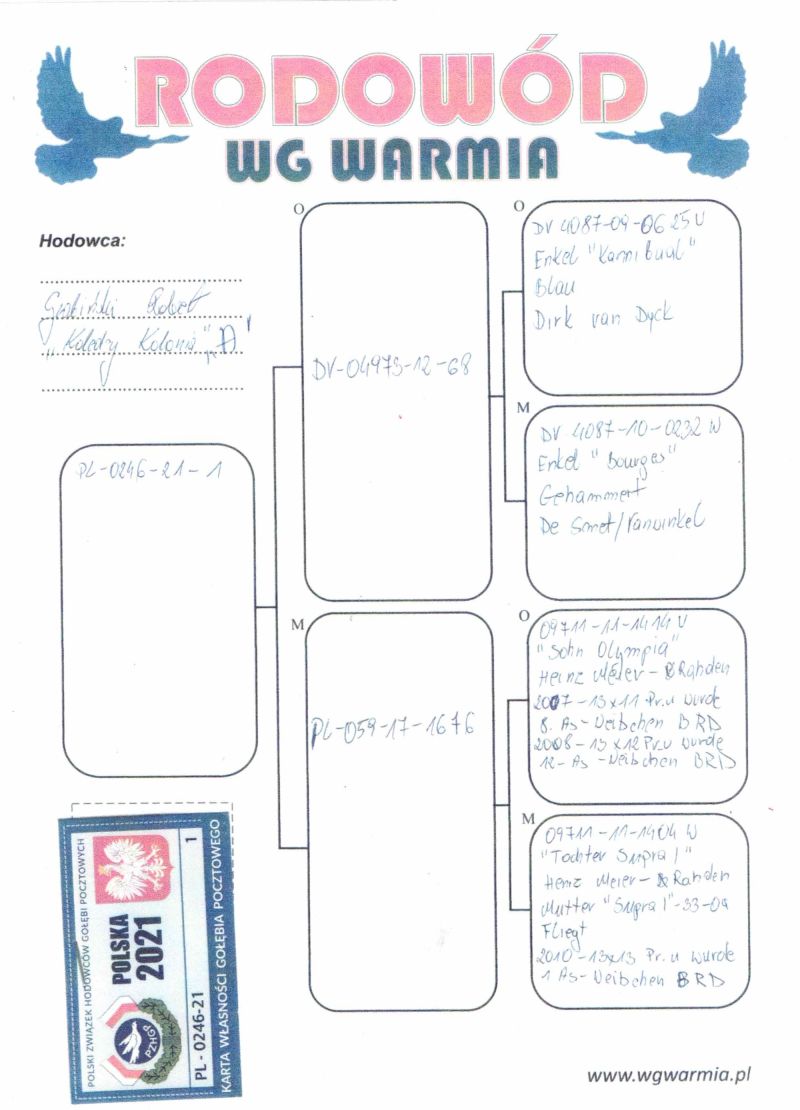 RODOWÓD
WG WARMIA
Hodowca:
"Koledzy Kolonia" "A"
PL-0246-21-1
O
DV-04973-12-68
M
PL-059-17-1676
O
DV 4087-09-0625 U
Enkel "Kannibaal"
Blau
Dirk van Dyck
M
DV 4087-10-0232 W
Enkel "Bourges"
Gehammert
De Smet/Vanwinkel
O
09711-11-1414 U
"Sohn Olympia"
Heinz Meier - Rahden
2007-13x11 Pr.u wurde
8. As-Weibchen BRD
2008-13x12 Pr.u wurde
12-As-Weibchen BRD
M
09711-11-1404 W
"Tochter Supra 1"
Heinz Meier - Rahden
Mutter "Supra 1"-33-09
Fliegt
2010-13x13 Pr.u wurde
1 As-Weibchen BRD
POLSKI ZWIĄZEK HODOWCÓW GOŁĘBI POCZTOWYCH
POLSKA
2021
PZHGP
PL - 0246-21
1
KARTA WŁASNOŚCI GOŁĘBIA POCZTOWEGO
www.wgwarmia.pl